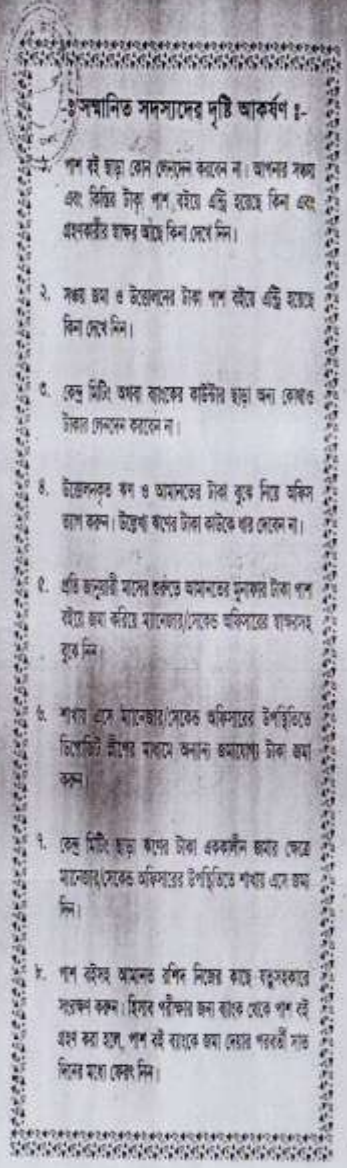 -ঃ সম্মানিত সদস্যাদের দৃষ্টি আকর্ষণ ঃ-
১. পাশ বই ছাড়া কোন লেনদেন করবেন না। আপনার সঞ্চয়
এবং কিস্তির টাকা পাশ বইয়ে এন্ট্রি হয়েছে কিনা এবং
গ্রহণকারীর স্বাক্ষর আছে কিনা দেখে নিন।
২. সঞ্চয় জমা ও উত্তোলনের টাকা পাশ বইয়ে এন্ট্রি হয়েছে
কিনা দেখে নিন।
৩. কেন্দ্র মিটিং অথবা ব্যাংকের কাউন্টার ছাড়া অন্য কোথাও
টাকার লেনদেন করবেন না।
৪. উত্তোলনকৃত ঋণ ও আমানতের টাকা বুঝে নিয়ে অফিস
ত্যাগ করুন। উল্লেখ্য ঋণের টাকা কাউকে ধার দেবেন না।
৫. প্রতি জানুয়ারী মাসের শুরুতে আমানতের মুনাফার টাকা পাশ
বইয়ে জমা করিয়ে ম্যানেজার/সেকেন্ড অফিসারের স্বাক্ষরসহ
বুঝে নিন।
৬. শাখায় এসে ম্যানেজার/সেকেন্ড অফিসারের উপস্থিতিতে
ডিপোজিট স্লীপের মাধ্যমে অন্যান্য জমাযোগ্য টাকা জমা
করুন।
৭. কেন্দ্র মিটিং ছাড়া ঋণের টাকা এককালীন জমার ক্ষেত্রে
ম্যানেজার/সেকেন্ড অফিসারের উপস্থিতিতে শাখায় এসে জমা
দিন।
৮. পাশ বইসহ আমানত রশিদ নিজের কাছে যত্নসহকারে
সংরক্ষণ করুন। হিসাব পরীক্ষার জন্য ব্যাংক থেকে পাশ বই
গ্রহণ করা হলে, পাশ বই ব্যাংকে জমা দেয়ার পরবর্তী সাত
দিনের মধ্যে ফেরৎ নিন।